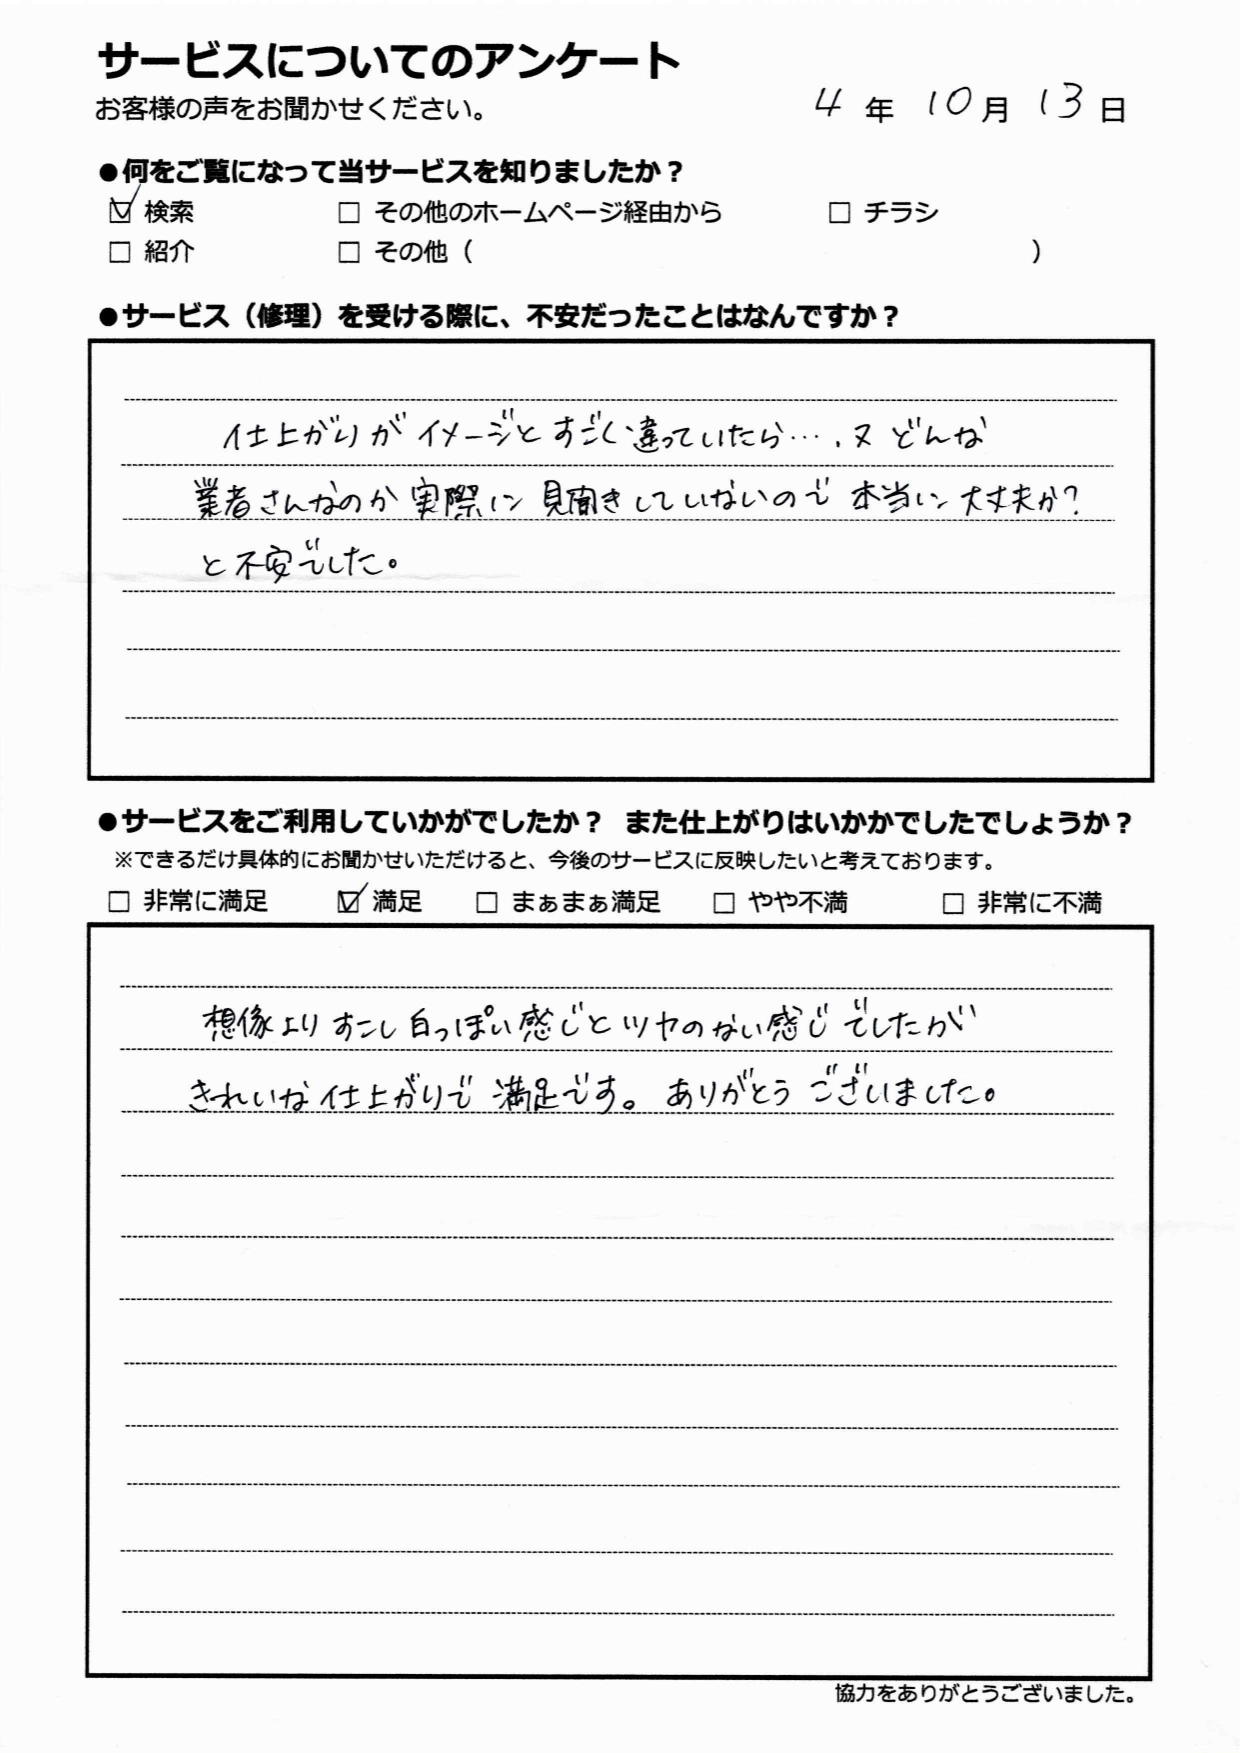 サービスについてのアンケート
お客様の声をお聞かせください。
4年 10月 13日
●何をご覧になって当サービスを知りましたか？
☑ 検索 □ その他のホームページ経由から □ チラシ
□ 紹介 □ その他（ ）
●サービス（修理）を受ける際に、不安だったことはなんですか？
仕上がりがイメージとすごく違っていたら…、又どんな
業者さんなのか実際に見聞きしていないので本当に大丈夫か？
と不安でした。
●サービスをご利用していかがでしたか？ また仕上がりはいかかでしたでしょうか？
※できるだけ具体的にお聞かせいただけると、今後のサービスに反映したいと考えております。
□ 非常に満足 ☑ 満足 □ まぁまぁ満足 □ やや不満 □ 非常に不満
想像よりすこし白っぽい感じとツヤのない感じでしたが
きれいな仕上がりで満足です。ありがとうございました。
協力をありがとうございました。